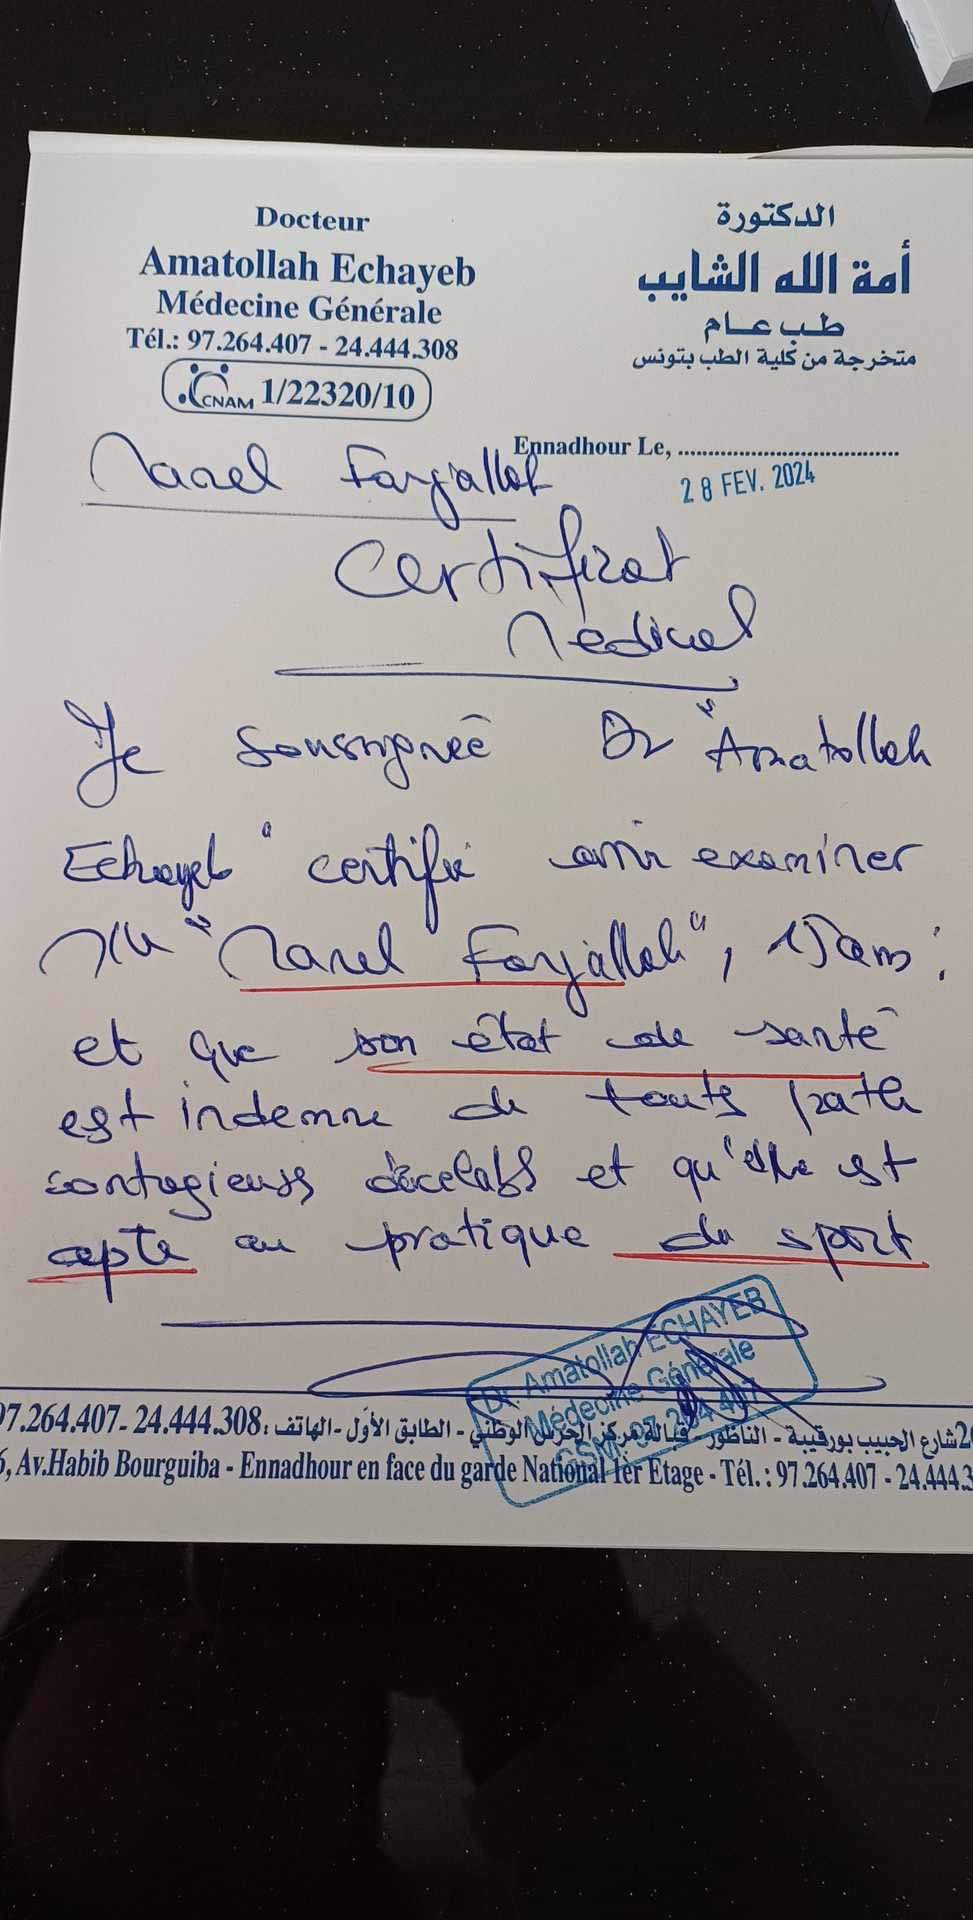 Docteur
Amatollah Echayeb
Médecine Générale
Tél.: 97.264.407 - 24.444.308
CNAM 1/22320/10
الدكتورة
أمة الله الشايب
طب عام
متخرجة من كلية الطب بتونس
Ennadhour Le, ........................................
28 FEV. 2024
Farjallah
Certificat
Médical
Je soussignée Dr "Amatollah
Echayeb" certifie avoir examiner
Farjallah", 15 ans;
et que son état de santé
est indemne de touts path
contagieuses décelabls et qu'elle est
apte au pratique du sport
Dr. Amatollah ECHAYEB
Médecine Générale
97.264.407- 24.444.308 : شارع الحبيب بورقيبة - الناظور - قبالة مركز الحرس الوطني - الطابق الأول -الهاتف
6, Av.Habib Bourguiba - Ennadhour en face du garde National 1èr Etage - Tél. : 97.264.407 - 24.444.3